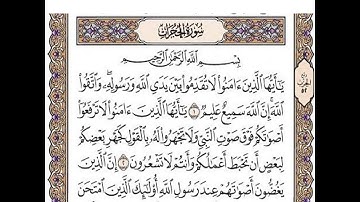 سُورَةُ الحُجُرَاتِ
بِسْمِ اللَّهِ الرَّحْمَٰنِ الرَّحِيمِ
يَٰٓأَيُّهَا الَّذِينَ ءَامَنُوا۟ لَا تُقَدِّمُوا۟ بَيْنَ يَدَيِ اللَّهِ وَرَسُولِهِۦ ۖ وَاتَّقُوا۟
اللَّهَ ۚ إِنَّ اللَّهَ سَمِيعٌ عَلِيمٌ ١ يَٰٓأَيُّهَا الَّذِينَ ءَامَنُوا۟ لَا تَرْفَعُوٓا۟
أَصْوَٰتَكُمْ فَوْقَ صَوْتِ النَّبِيِّ وَلَا تَجْهَرُوا۟ لَهُۥ بِالْقَوْلِ كَجَهْرِ بَعْضِكُمْ
لِبَعْضٍ أَن تَحْبَطَ أَعْمَٰلُكُمْ وَأَنتُمْ لَا تَشْعُرُونَ ٢ إِنَّ الَّذِينَ
يَغُضُّونَ أَصْوَٰتَهُمْ عِندَ رَسُولِ اللَّهِ أُو۟لَٰٓئِكَ الَّذِينَ امْتَحَنَ
الحزب
٥٢